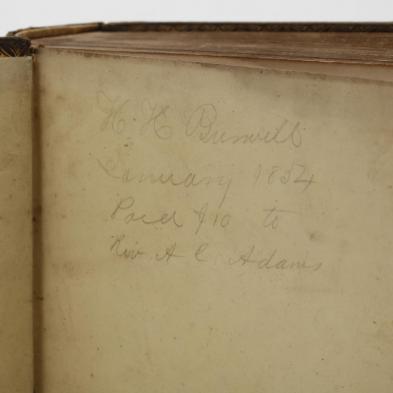 H. H. Burwell
January 1854
Paid $10 to
Rev. A C. Adams